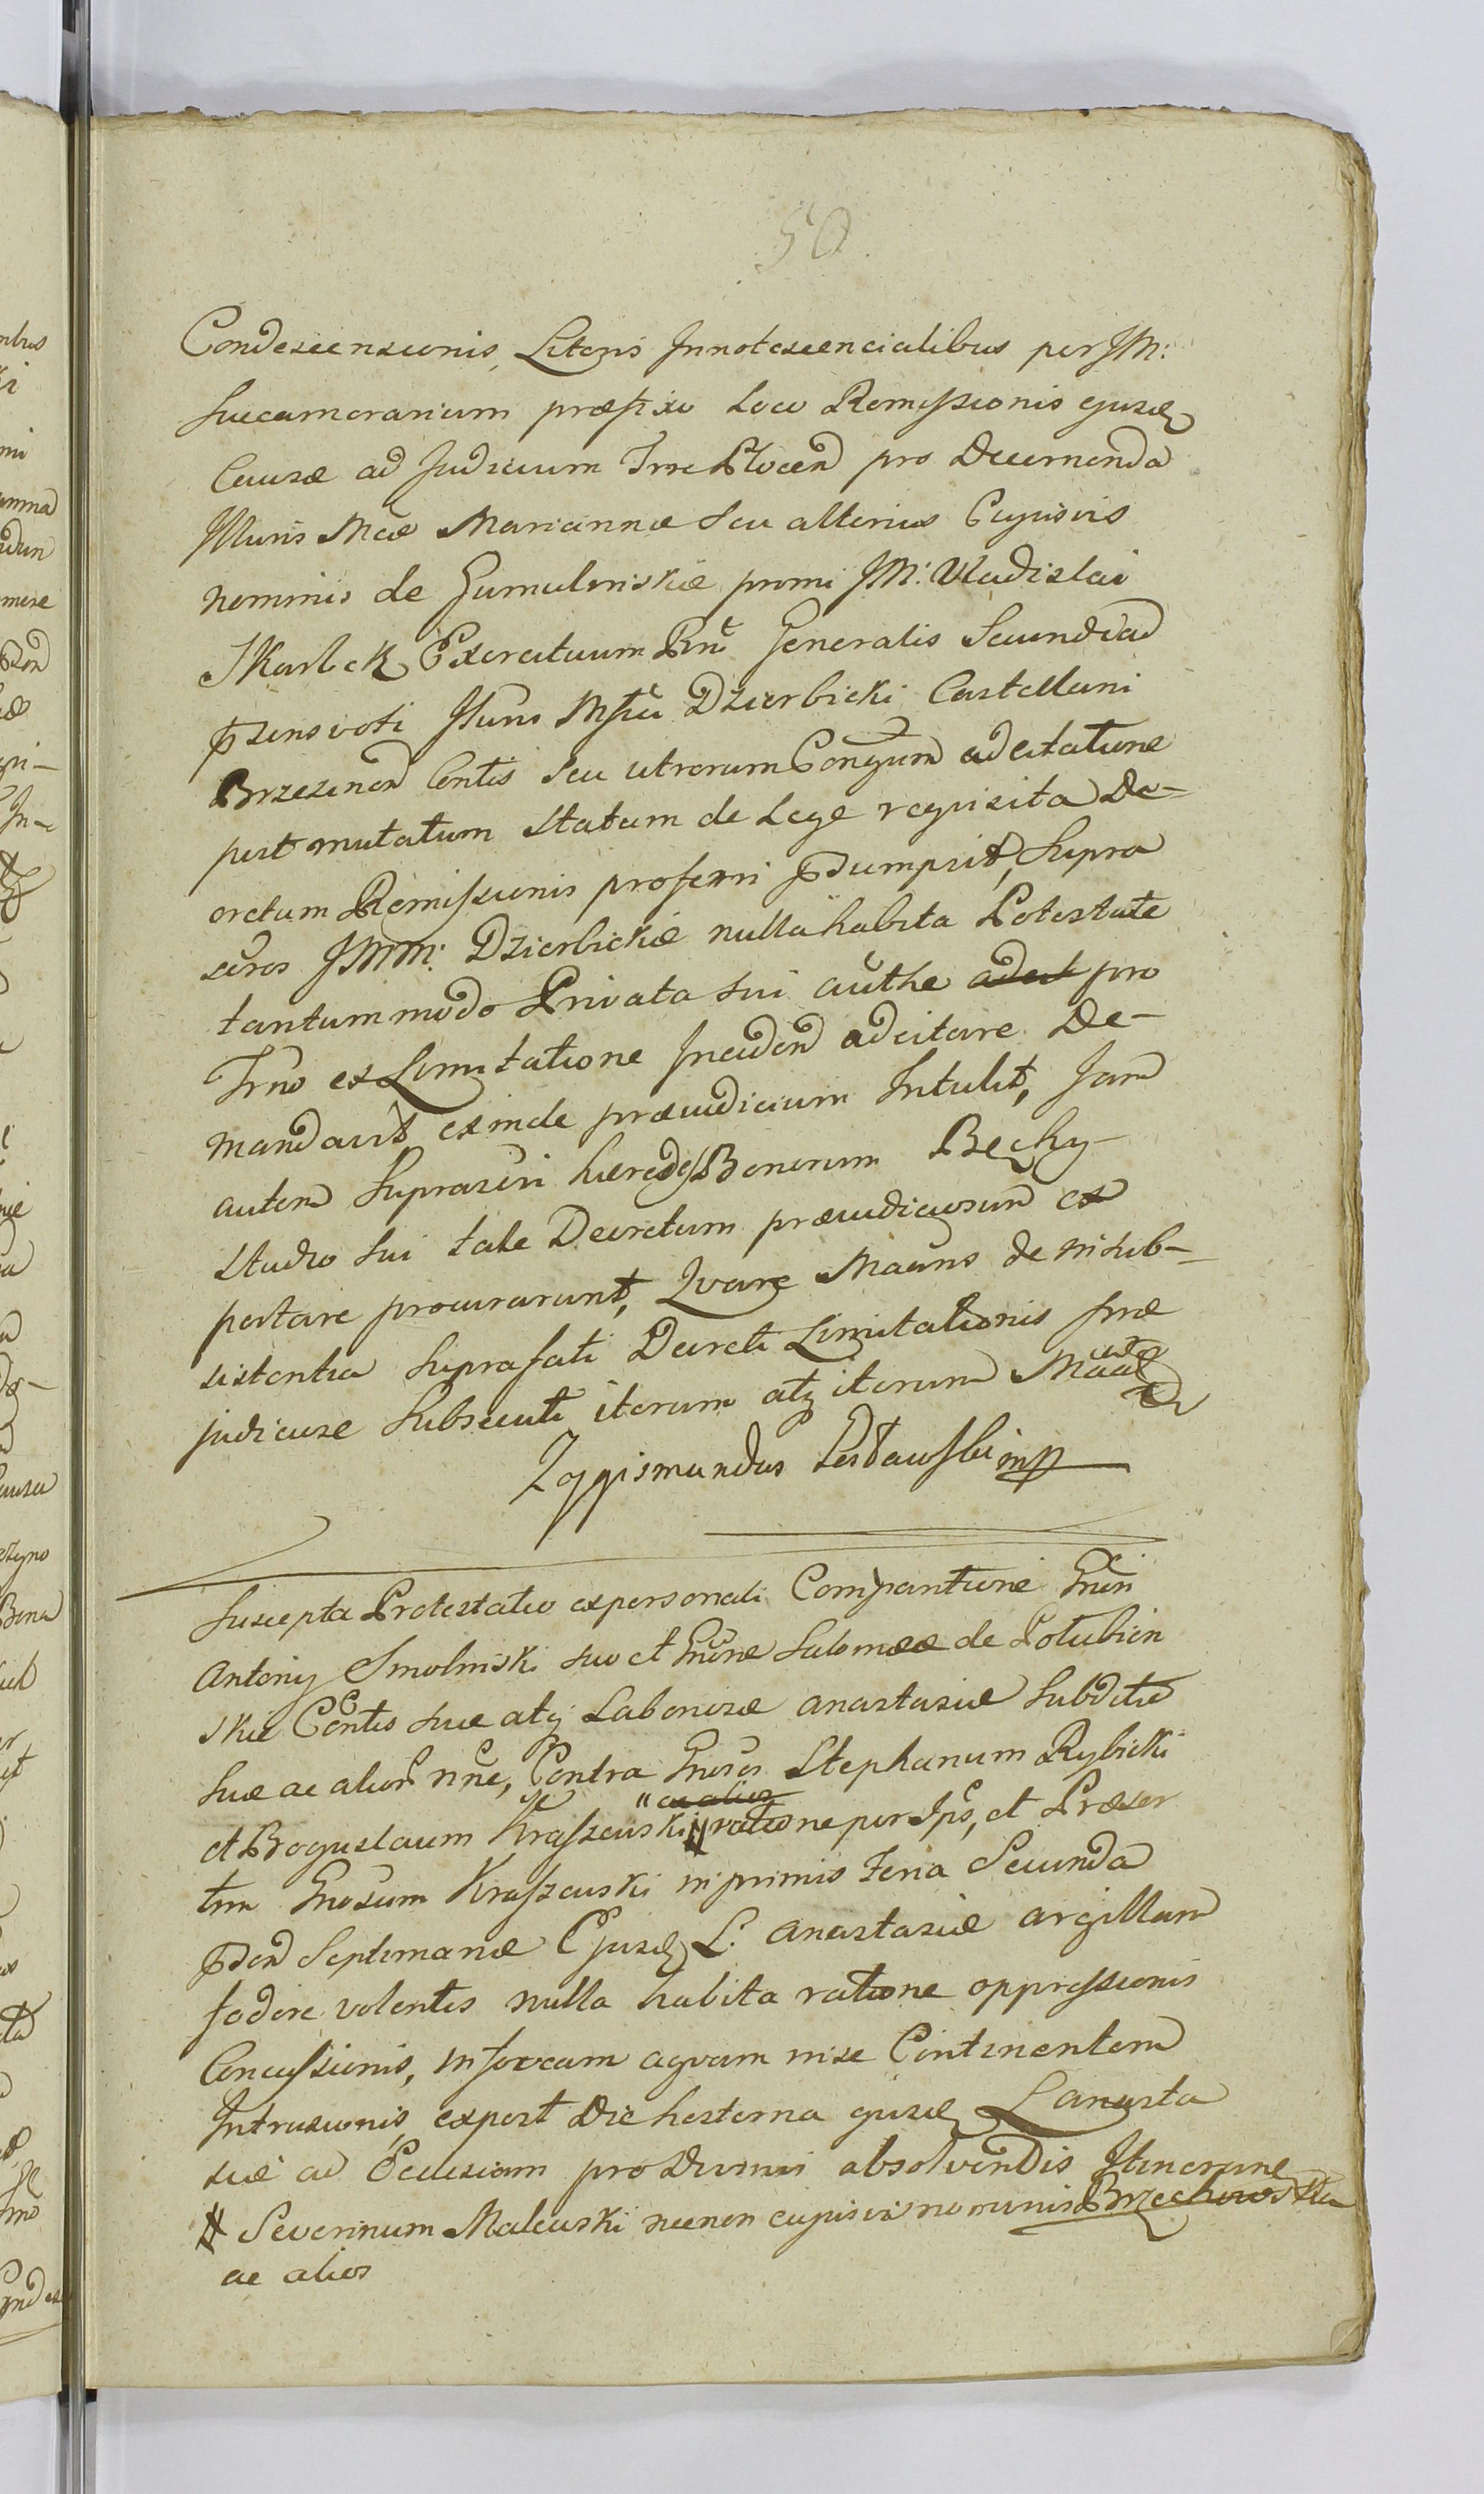 50
Condescensionis, Literis Innotescencialibus per JM:
Succamerarium præfixo Loco Remissionis ejusd
Causæ ad Judicium Trre Plocen pro Decernenda
Illuris Mcæ Mariannæ seu alterius Cujusvis
nominis de Gumulinskie primi JM: Uladislai
Skarbek Exercituum Rni Generalis Secundi ad
pzens voti Illuris Mfici Dzierbicki Castellani
Brzezinen Contis seu utrorum Conjgum adcitatione
post mutatum Statum de Lege requisita De-
cretum Remissionis proferri pdumpsit, Supra
scros JMM: Dzierbickie nulla habita Potestate
tantummodo Privata sui authe adcit pro
Trno ex Limitatione Inciden adcitare De-
mandavit, exinde præjudicium Intulit, Jam
autem Suprascri hæredes Bonorum Bechy
studio sui tale Decretum præjudiciosum ex
portare procurarunt, Qvare Mains de in sub-
sistentia Suprafati Decreti Limitationis præ
judiciose Subsecuti iterum atq iterum Maatr
Zygismundus Lestawski mp
Suscepta Protestatio ex personali Comparitione Gnri
Antonij Smolinski suo et Gnrne Salomeæ de Potubien
skie Contis suæ atq Laboriosæ Anastasiæ Subditæ
suæ ac alior nne, Contra Gnros Stephanum Rybicki
et Boguslaum Kraszewski " ac alios # ratione per Ipos, et Præser
tim Gnosum Kraszewski in primis Feria Secunda
pden Septimanæ Ejusd L. Anastasiæ argillam
fodere volentis nulla habita ratione oppressionis
Concussionis, in foveam aqvam in se Continentem
Intrusionis, expost Die hesterna ejusd L Anasta
siæ ad Ecclesiam pro Divinis absolvendis Itinerane
# Severinum Malewski necnon cujusvis nominis Brzechowska
ac alios